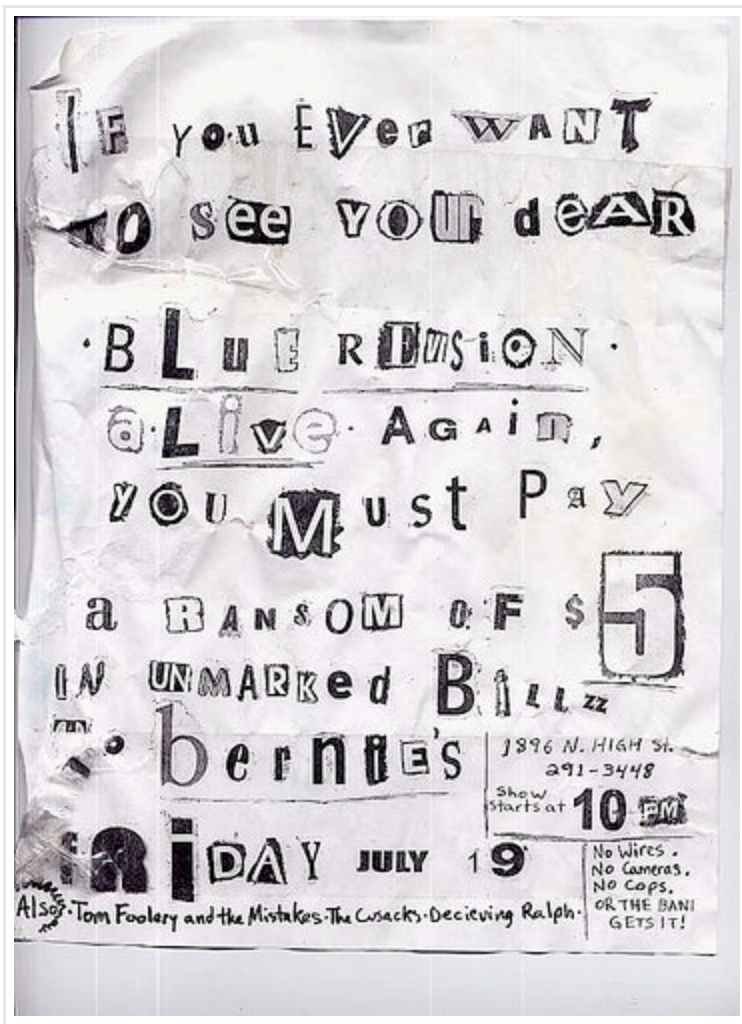 IF You EVer WANT
TO See YOUR deAR
·BLuE REVISiON·
a·Live· AGAin,
YOU Must PAY
a RANSOM OF $5
IN UNMARKed BiLLzz
TO bernie's
1896 N. HIGH St.
291-3448
Show
starts at 10 PM
FRiDAY JULY 19
No Wires.
No Cameras.
No Cops.
OR THE BAND
GETS IT!
Also·Tom Foolery and the Mistakes·The Cusacks·Decieving Ralph·